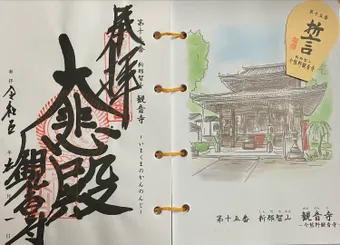 第十五番 新那智山 観音寺 ～いまくまのかんのんじ～
奉拝
大悲殿
観音寺
令和五年
第十五番
誓
今熊野観音寺
第十五番 新那智山 観音寺
～今熊野観音寺～